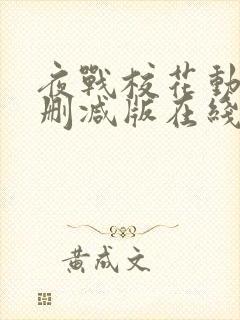 夜戰校花動
刪減版在綫
黃成文